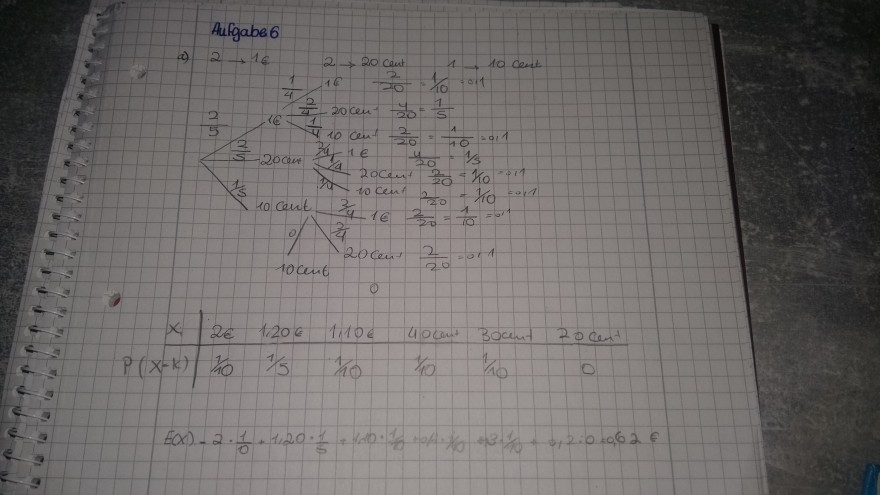 Aufgabe 6
a) 2 → 1€ 2 → 20 cent 1 → 10 cent
1/4 1€ 2/20 = 1/10 = 0,1
2/5 1€ 2/4 20 cent 4/20 = 1/5
1/4 10 cent 2/20 = 1/10 = 0,1
2/5 20 cent 2/4 1€ 4/20 = 1/5
1/4 20 cent 2/20 = 1/10 = 0,1
1/4 10 cent 2/20 = 1/10 = 0,1
1/5 10 cent 2/4 1€ 2/20 = 1/10 = 0,1
0 2/4 20 cent 2/20 = 0,1
10 cent
0
X 2€ 1,20€ 1,10€ 40 cent 30 cent 20 cent
P(X=k) 1/10 1/5 1/10 1/10 1/10 0
E(X) = 2 · 1/10 + 1,20 · 1/5 + 1,10 · 1/10 · 1/10 · 1/10 0,2 · 0 = 0,62 €